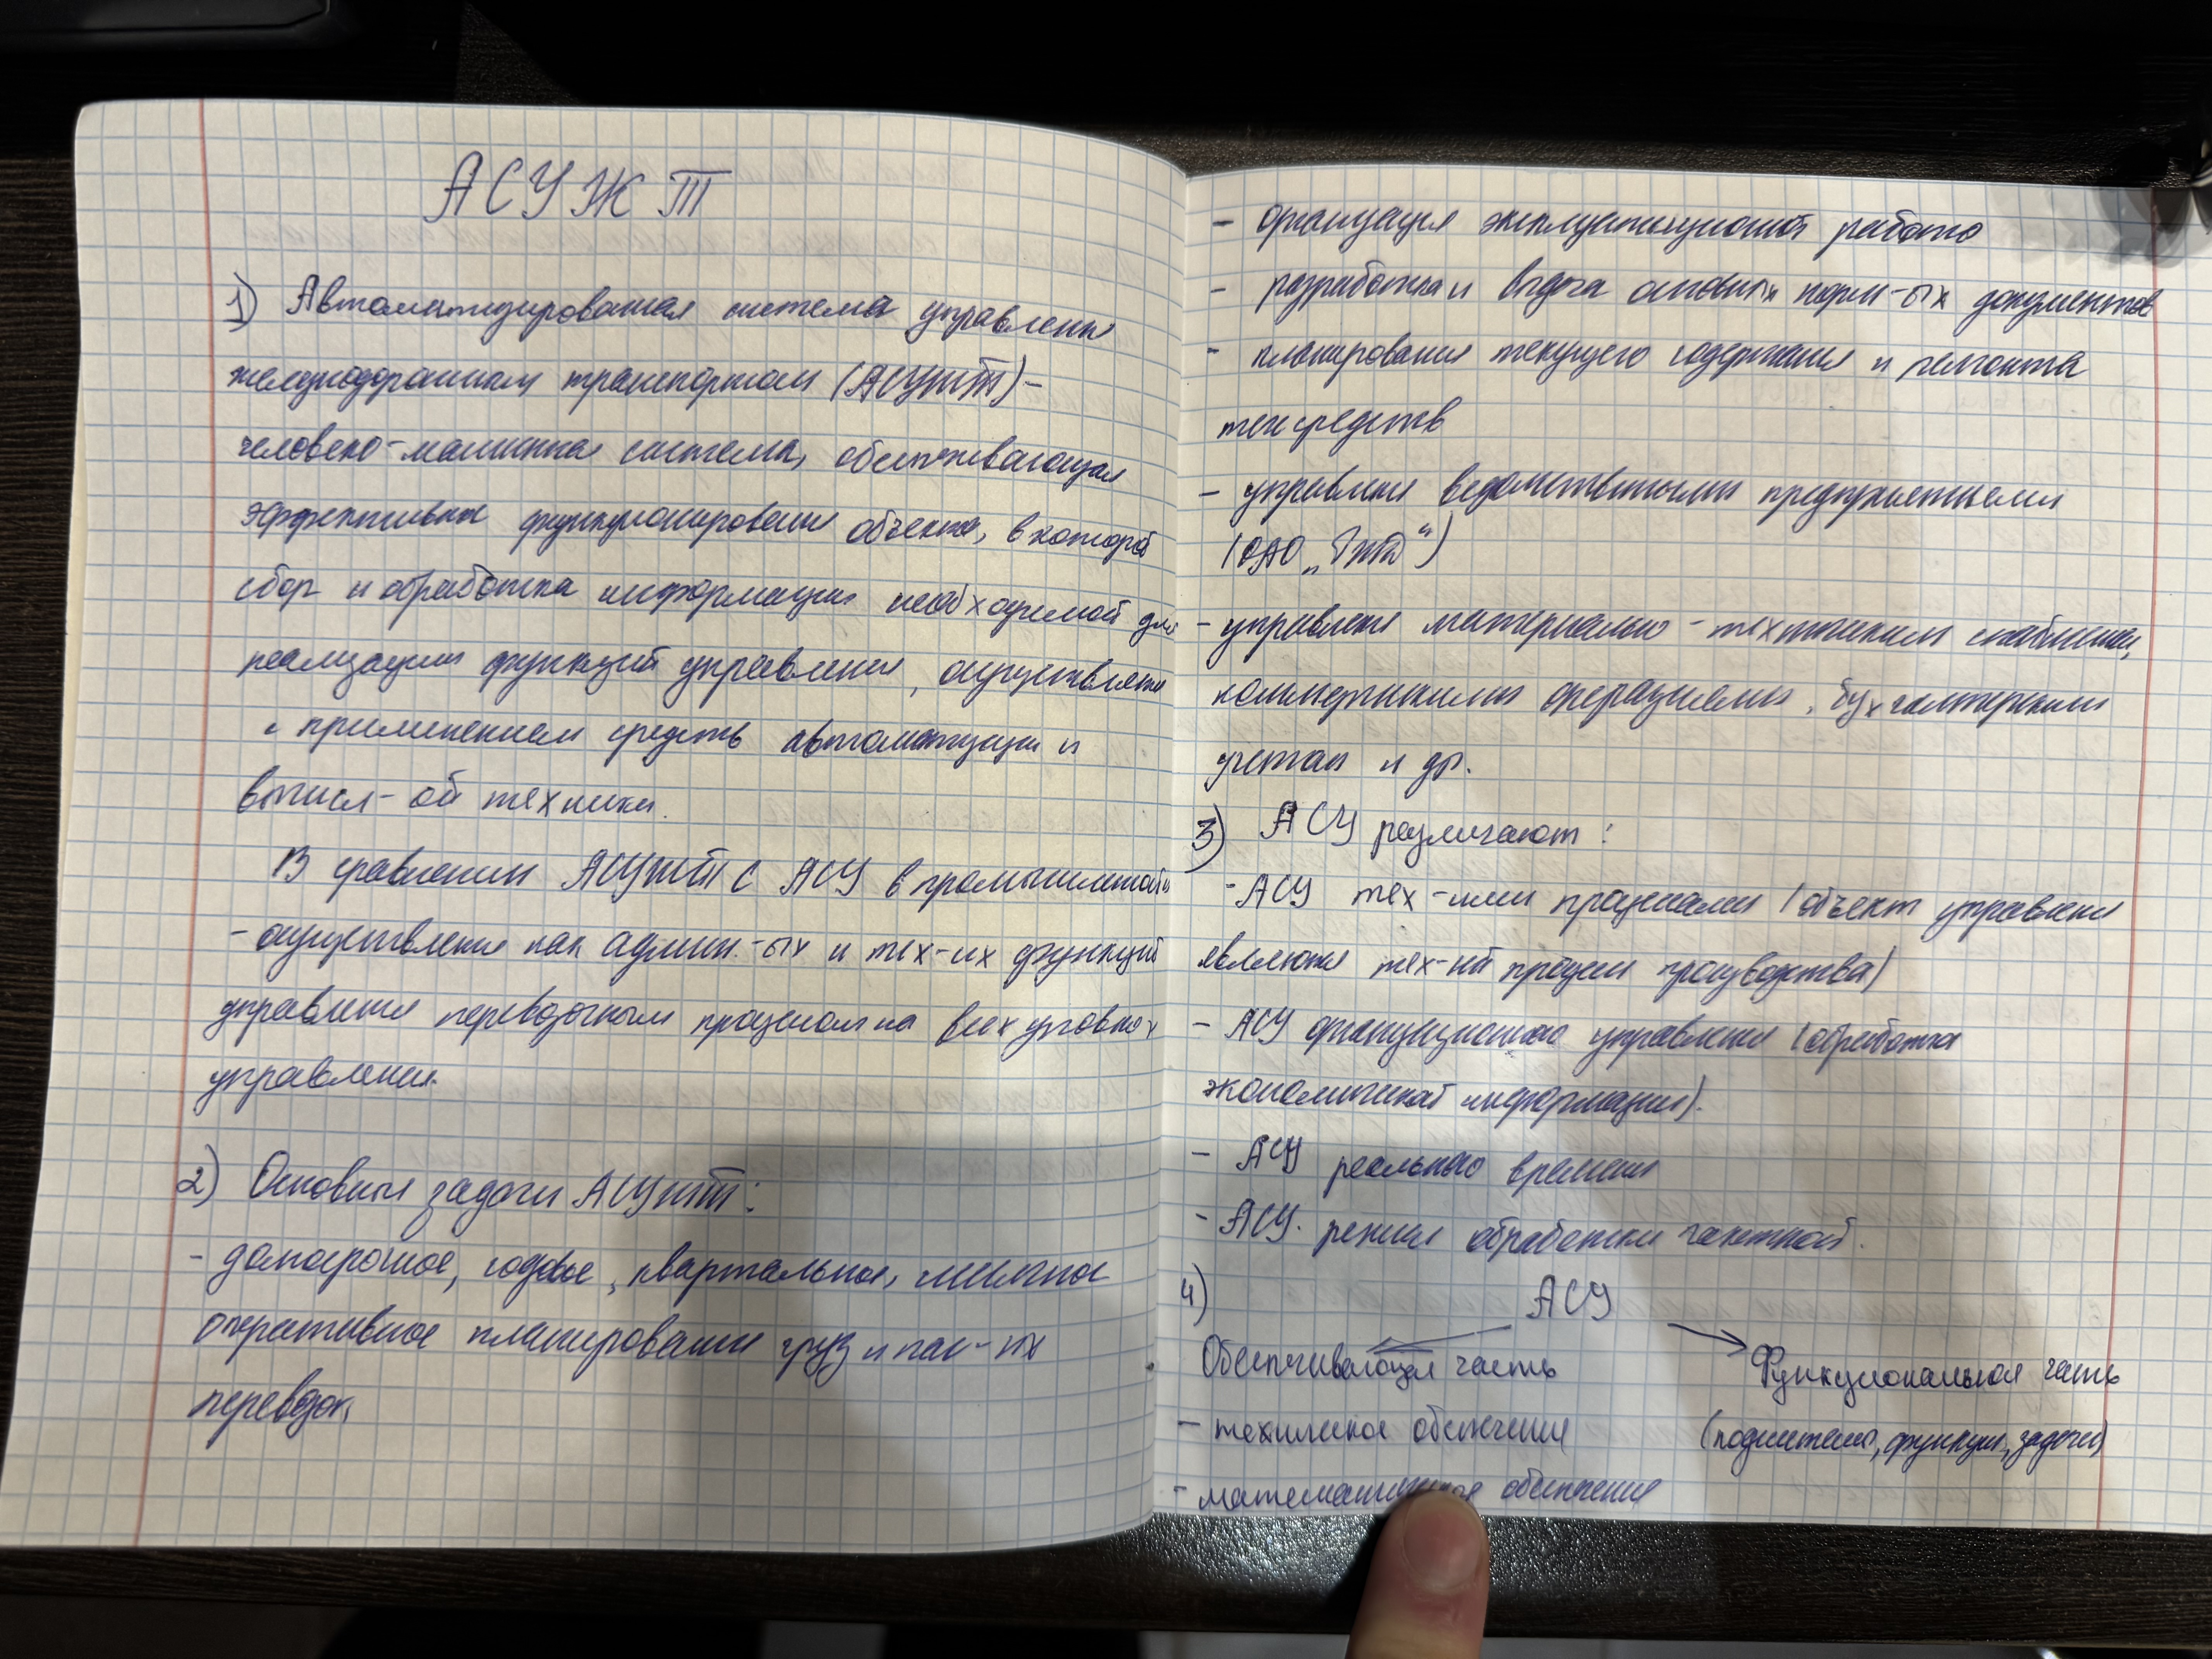 АСУЖТ
1) Автоматизированная система управления
железнодорожным транспортом (АСУЖТ) –
человеко-машинная система, обеспечивающая
эффективное функционирование объекта, в которой
сбор и обработка информации необходимой для
реализации функций управления, осуществляется
с применением средств автоматизации и
вычисл-ой техники.
В сравнении АСУЖТ с АСУ в промышленной
- осуществление как админ.-ых и тех-их функций
управления перевозочным процессом на всех уровнях
управления.
2) Основные задачи АСУЖТ:
- долгосрочное, годовое, квартальное, месячное
оперативное планирование груз и пас-их
перевозок
- организация эксплуатационной работы
- разработка и выдача основных норм-ых документов
- планирование текущего содержания и ремонта
тех средств
- управление ведомственными предприятиями
(ОАО „РЖД“)
- управление материально-техническим снабжением,
коммерческими операциями, бухгалтерским
учетом и др.
3) АСУ различают:
- АСУ тех-ими процессами (объект управления
является тех-ий процесс производства)
- АСУ организационного управления (обработка
экономической информации).
- АСУ реального времени
- АСУ. режим обработки пакетной.
4) АСУ
Обеспечивающая часть Функциональная часть
- техническое обеспечение (подсистемы, функции, задачи)
- математическое обеспечение